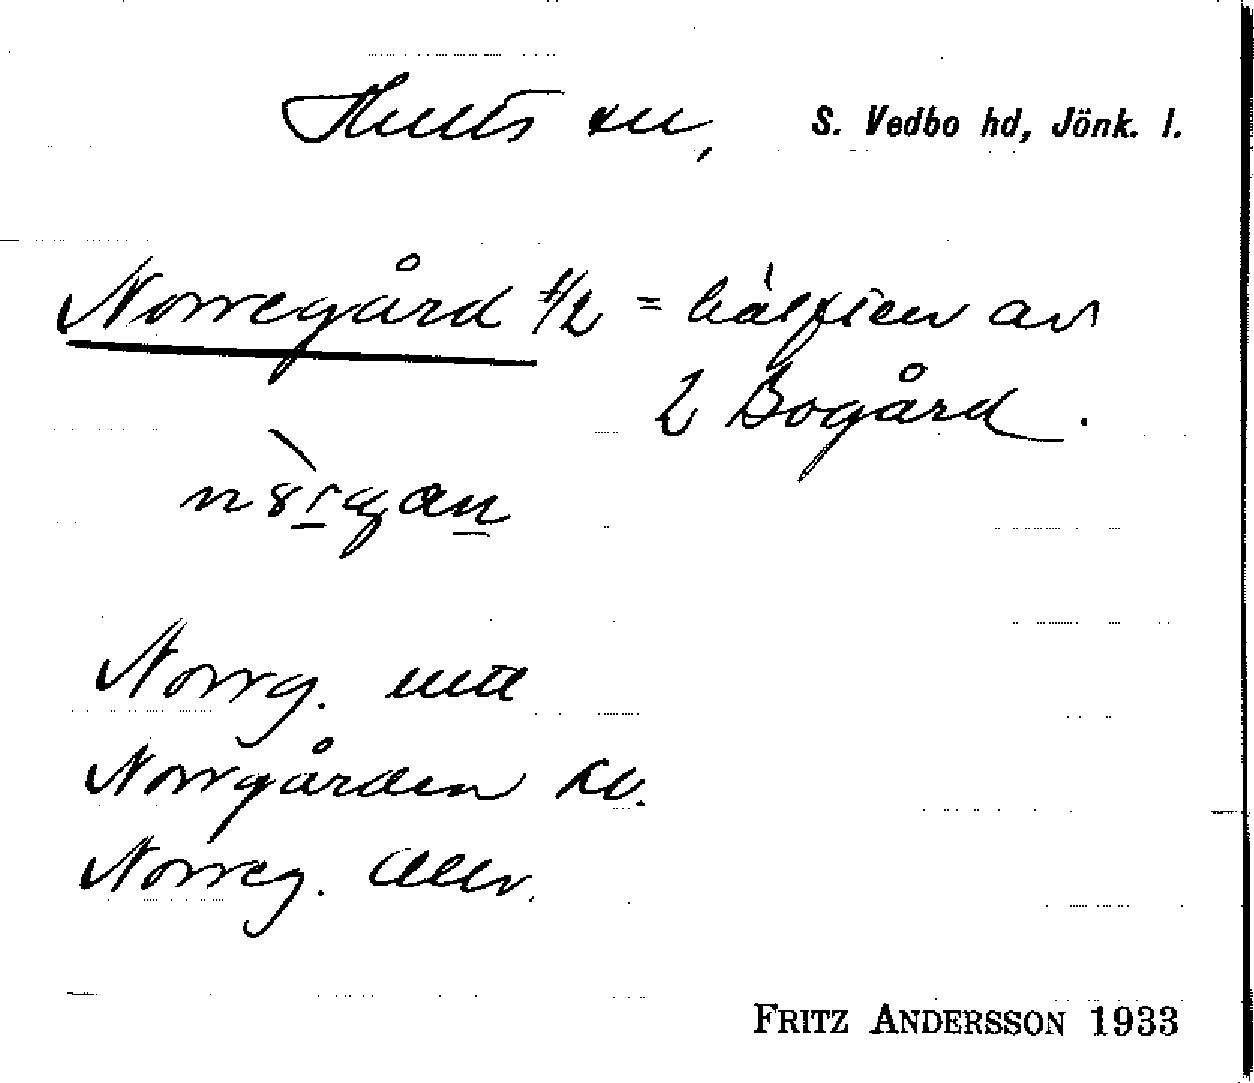 Hults sn, S. Vedbo hd, Jönk. l.
Norregård 1/2 = hälften av
2 Bogård.
Norrg. utt
Norrgården
Norreg.
FRITZ ANDERSSON 1933